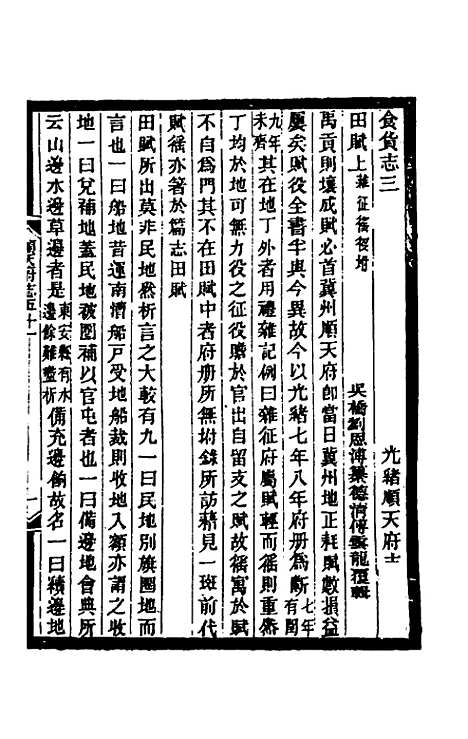 食貨志三　光緒順天府志
田賦上雜征徭役坿　吳橋劉恩溥纂德清傅雲龍覆輯
禹貢則壤成賦必首冀州順天府卽當日冀州地正耗賦數損益
屢矣賦役全書半與今異故今以光緒七年八年府册爲斷七年有閏
九年未齊其在地丁外者用禮雜記例曰雜征府屬賦輕而徭則重齋
丁均於地可無力役之征役贍於官出自留支之賦故徭寓於賦
不自爲門其不在田賦中者府册所無坿錄所訪藉見一斑前代
賦徭亦箸於篇志田賦
田賦所出莫非民地然析言之大較有九一曰民地別旗圈地而
言也一曰船地昔運南漕船戸受地船裁則收地入額亦謂之收
地一曰兌補地蓋民地被圈補以官屯者也一曰備邊地會典所
云山邊水邊草邊者是東安縣有水邊餘難盡析備充邊餉故名一曰積邊地
順天府志五十一　一